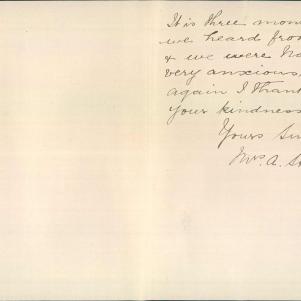 It is three mon
we heard fro
& we were
very anxious
again I thank
your kindness
Yours Sin
Mrs. A. S